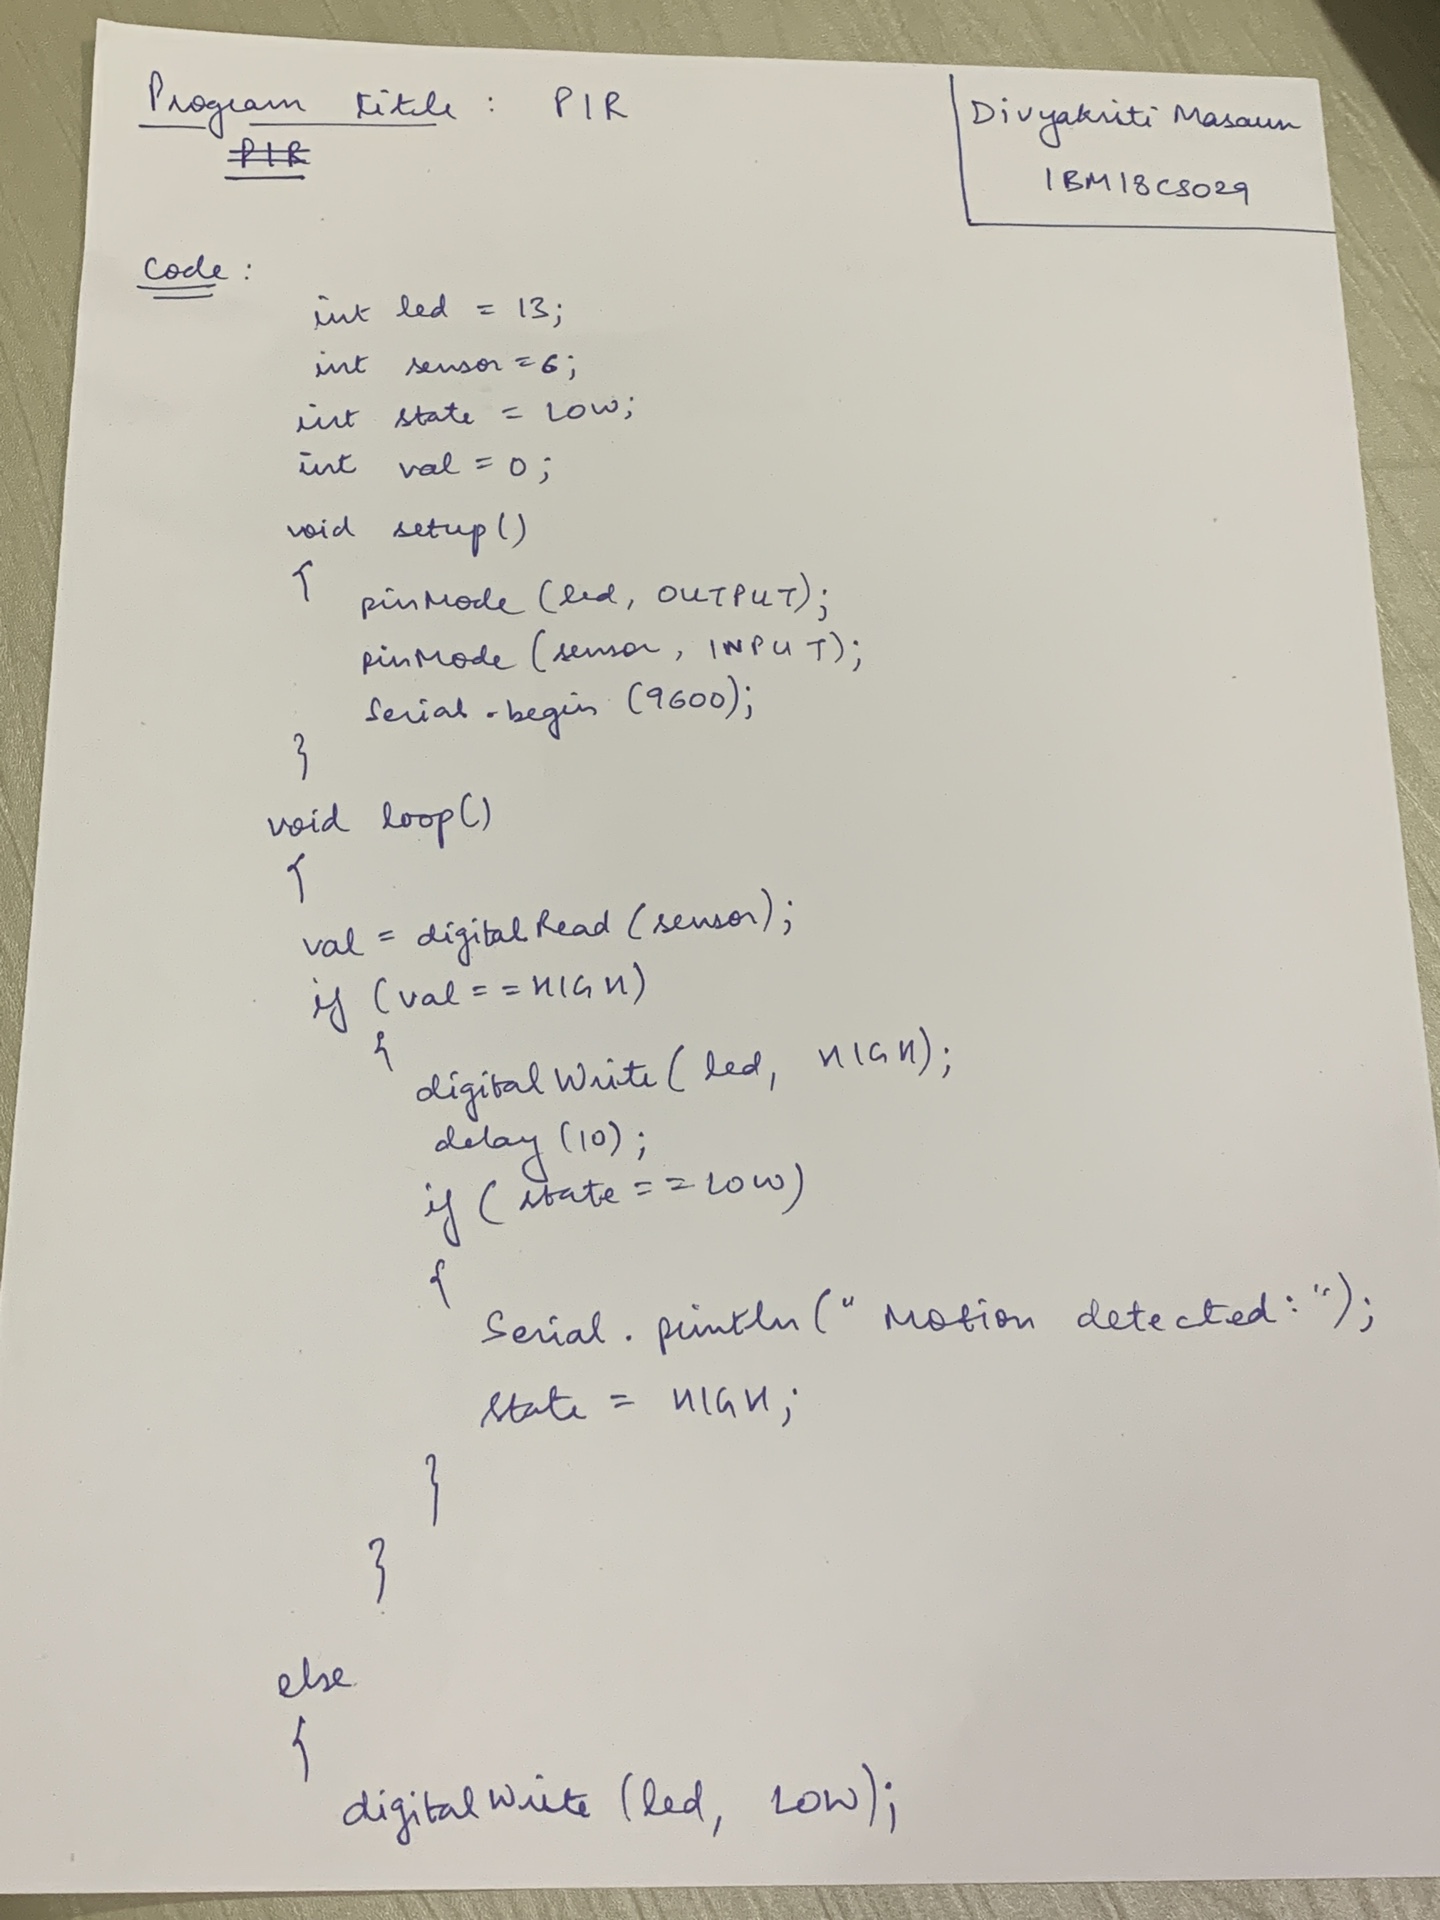 Program title : PIR
PIR
Divyakriti Masaun
1BM18CS029
Code :
int led = 13;
int sensor = 6;
int state = LOW;
int val = 0;
void setup()
{
pinMode (led, OUTPUT);
pinMode (sensor, INPUT);
Serial.begin (9600);
}
void loop()
{
val = digitalRead (sensor);
if (val == HIGH)
{
digitalWrite (led, HIGH);
delay (10);
if (state == LOW)
{
Serial.println(" Motion detected: ");
state = HIGH;
}
}
else
{
digitalWrite (led, LOW);